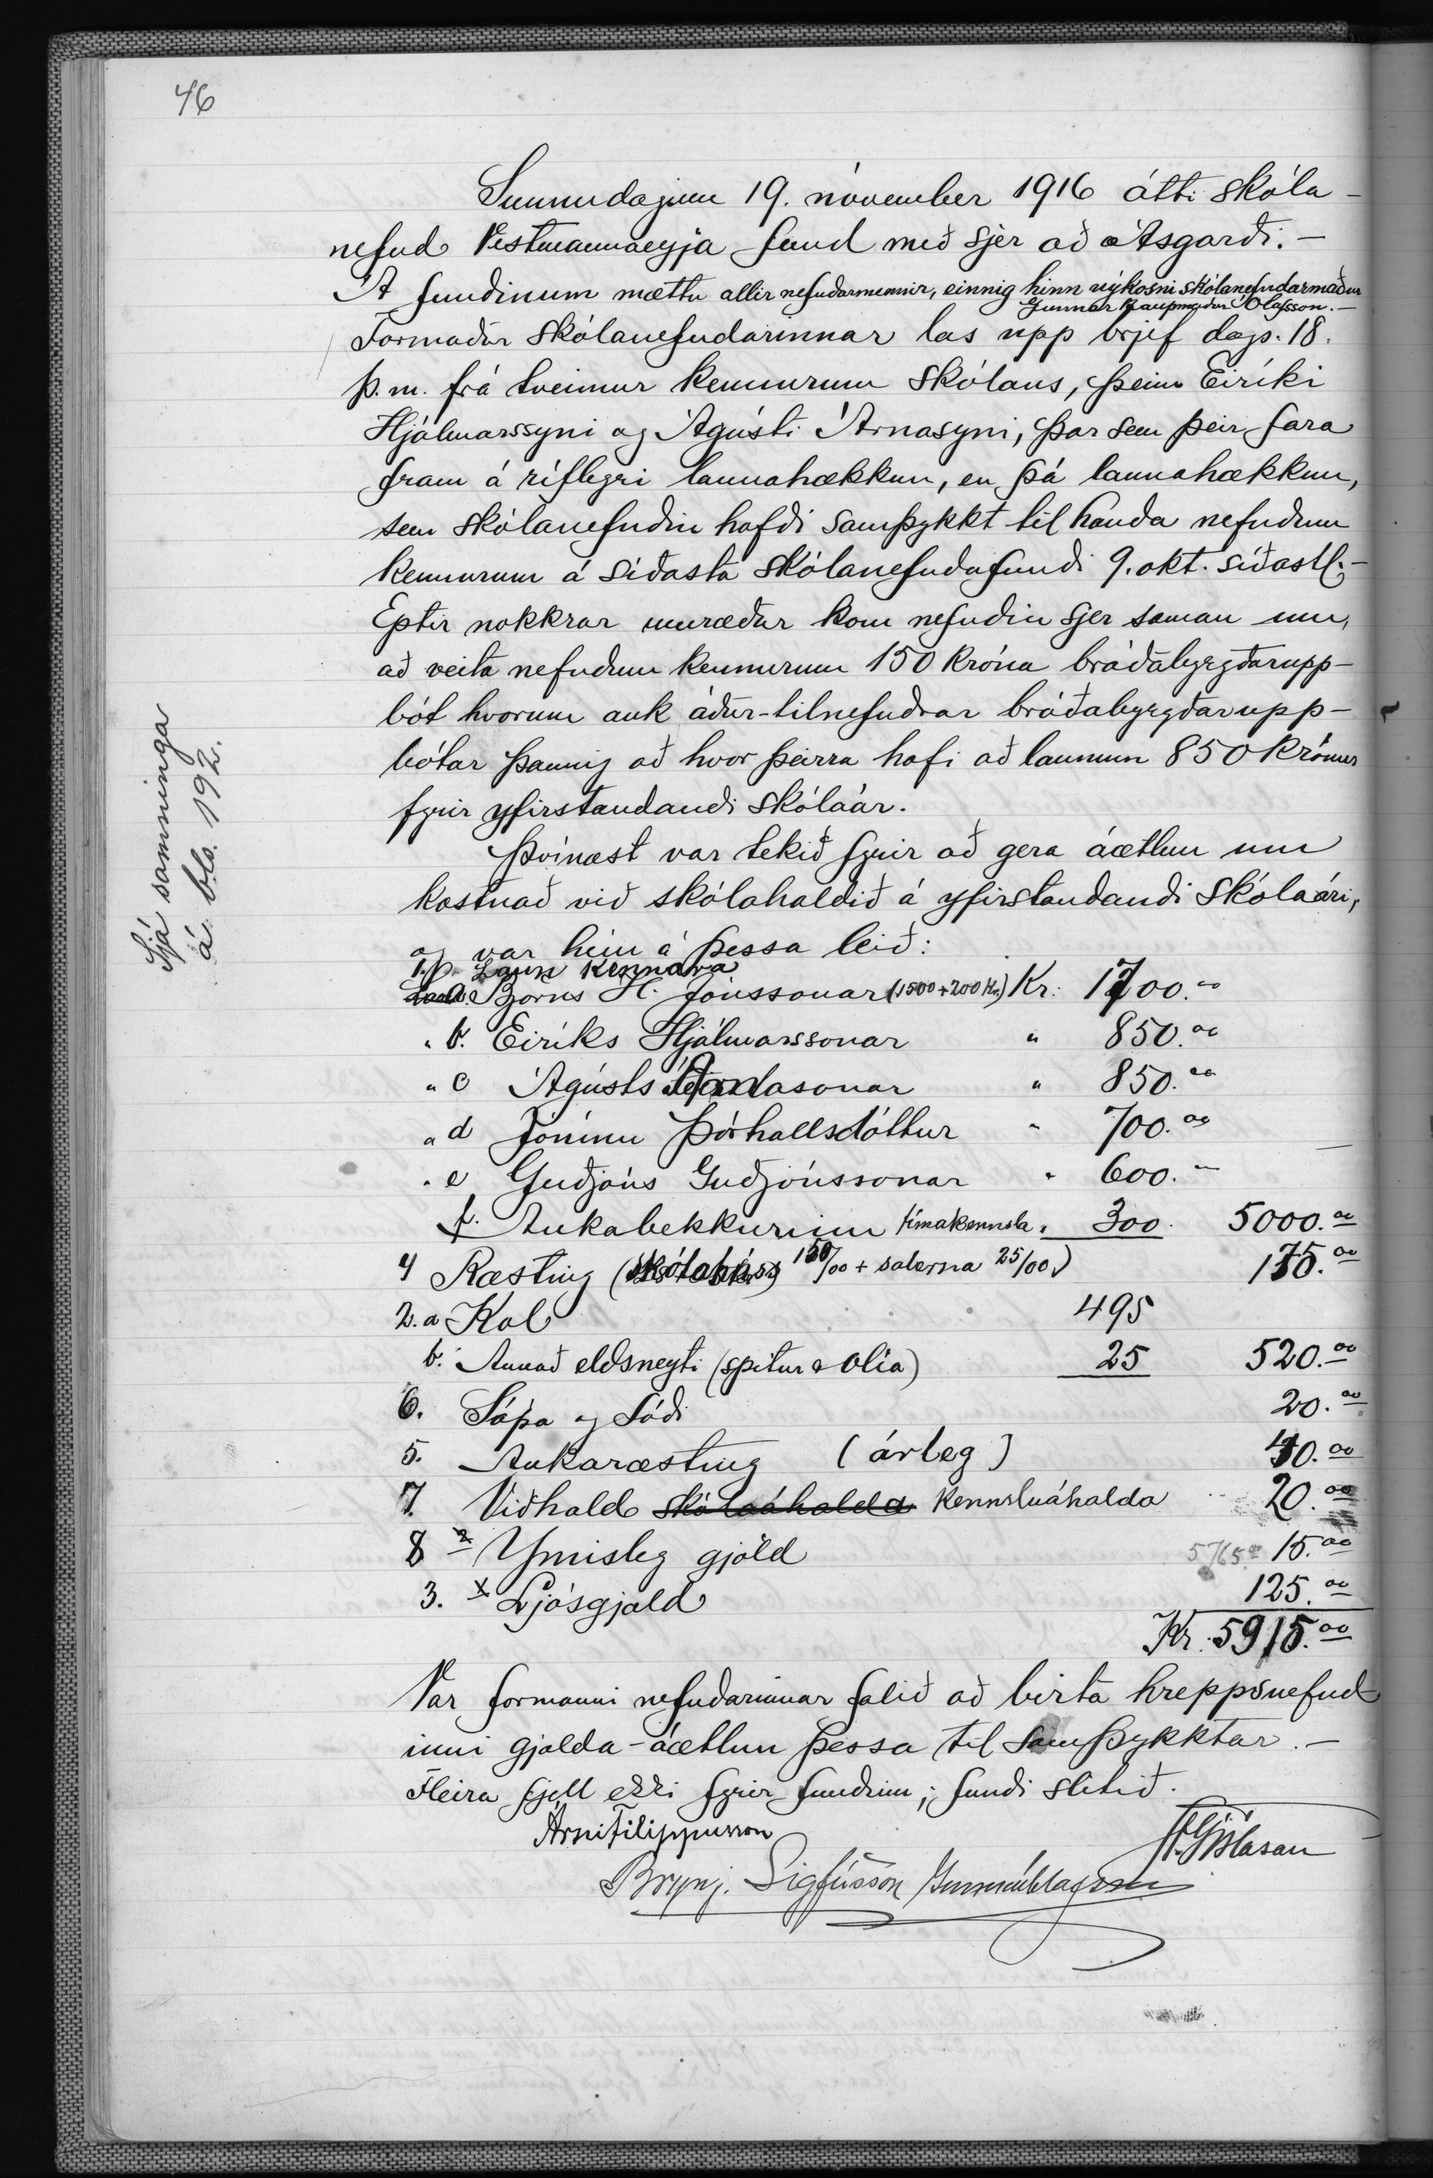 46
Sunnudaginn 19. nóvember 1916 átti skóla-
nefnd Vestmannaeyja fund með sjer að Ásgarði. -
Á fundinum mættu allir nefndarmennir, einnig hinn nýkosni skólanefndarmaður
Gunnar kaupmaður Ólafsson. -
Formaður skólanefndarinnar las upp brjef dags. 18.
þ.m. frá tveimur kennurum skólans, þeim Eiríki
Hjálmarssyni og Ágústi Árnasyni, þar sem þeir fara
fram á ríflegri launahækkun, en þá launahækkun,
sem skólanefndin hafði samþykkt til handa nefndum
kennurum á síðasta skólanefndafundi 9. okt. síðastl. -
Eptir nokkrar umræður kom nefndin sjer saman um,
að veita nefndum kennurum 150 króna bráðabyrgðarupp-
bót hvorum auk áður-tilnefndrar bráðabyrgðarupp-
bótar þannig að hvor þeirra hafi að launum 850 krónur
fyrir yfirstandandi skólaár.
Þvínæst var tekið fyrir að gera áætlun um
kostnað við skólahaldið á yfirstandandi skólaári,
og var hún á þessa leið:
1. Laun kennara
a. Björns H. Jónssonar (1500+200 kr.) Kr. 1700.00
" b. Eiríks Hjálmarssonar " 850.00
" c Ágústs Árnasonar " 850.00
" d Jónínu Þórhallsdóttur " 700.00
" e Guðjóns Guðjónssonar " 600.
f. Aukabekkurinn tímakennsla " 300. 5000.00
4 Ræsting (skólahúss 150/00 + salerna 25/00) 175.00
2. a Kol 495
b. Annað eldsneyti (spítur & olía) 25 520.00
6. Sápa og sódi 20.00
5. Aukaræsting (árleg) 40.00
7. Viðhald skólaáhalda kennsluáhalda 20.00
8 Ýmisleg gjöld 5765 15.00
3. x Ljósgjald 125.00
Kr. 5915.00
Var formanni nefndarinnar falið að birta hreppsnefnd
inni gjalda-áætlun þessa til samþykktar. -
Fleira fjell ekki fyrir fundinn; fundi slitið.
Árni Filippusson
Brynj. Sigfússon Gunnar Ólafsson
St. Gíslason
Sjá samninga
á bls. 192.